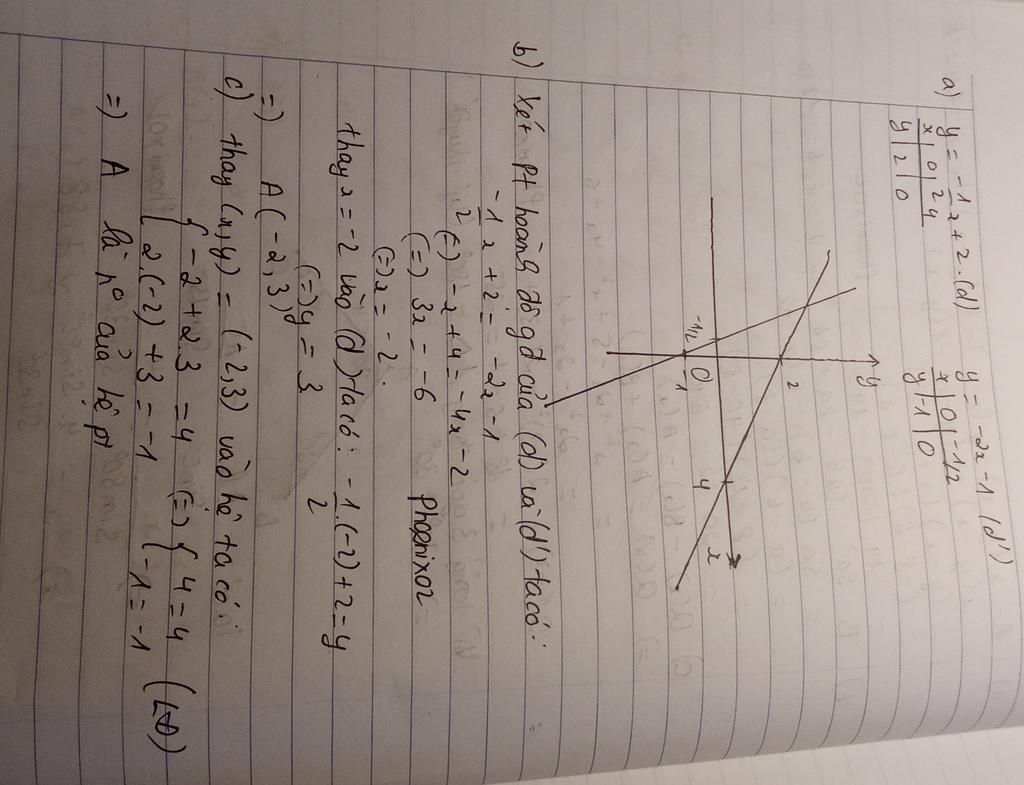 a) y = -1/2 x + 2 (d)
x | 0 | 4
y | 2 | 0
y = -2x - 1 (d')
x | 0 | -1/2
y | -1 | 0
y
2
-1/2
O
4
x
-1
b) Xét pt hoành độ gđ của (d) và (d') ta có:
-1/2 x + 2 = -2x - 1
(=) -x + 4 = -4x - 2
(=) 3x = -6
Phoenixoz
(=) x = -2.
thay x = -2 vào (d) ta có: -1/2.(-2) + 2 = y
(=) y = 3
=) A(-2,3)
c) thay (x,y) = (-2,3) vào hệ ta có:
{ -2 + 2.3 = 4 (=) { 4 = 4
{ 2.(-2) + 3 = -1 { -1 = -1 (LĐ)
=) A là no của hệ pt